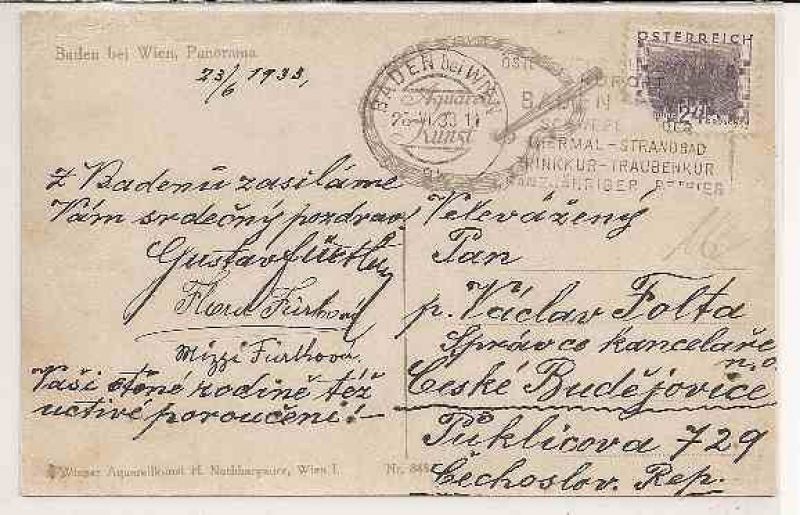 Baden bei Wien, Panorama.
23/6 1933,
BADEN bei WIEN
Aquarell
Kunst
ÖSTERREICH
24
SPORT
BADEN
THERMAL-STRANDBAD
TRINKKUR-TRAUBENKUR
GANZJÄHRIGER BETRIEB
Z Badenu zasíláme
Vám srdečný pozdrav!
Gustav Fürth
Flora Fürthová
Mizzi Fürthová.
Vaši ctěné rodině též
uctivé poroučení!
Velevážený
Pan
p. Václav Folta
Správce kanceláře
České Budějovice
Puklicova 729
Čechoslov. Rep.
Wiener Aquarellkunst Wien I.
Nr.
16